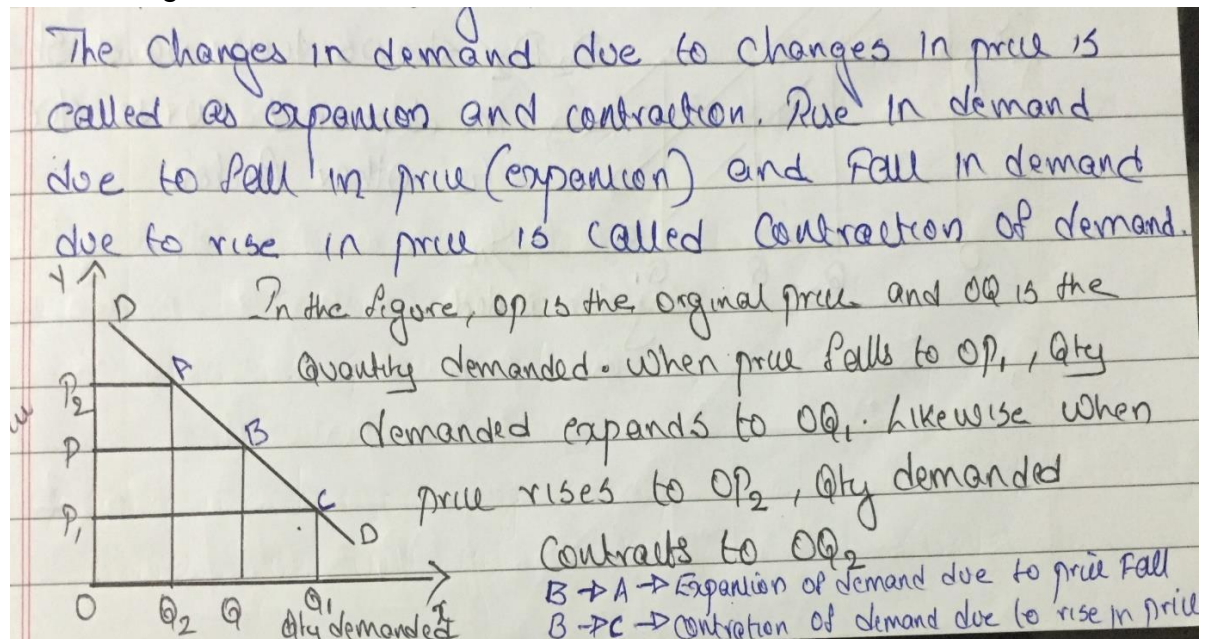 The Changes in demand due to changes in price is
called as expansion and contraction. Rise in demand
due to fall in price (expansion) and Fall in demand
due to rise in price is called Contraction of demand.
Y
D
In the figure, OP is the orginal price and OQ is the
A
Quantity demanded. When price falls to OP₁, Qty
P₂
B
demanded expands to OQ₁. Likewise when
P
price rises to OP₂, Qty demanded
P₁
C
D
Contracts to OQ₂
B → A → Expansion of demand due to price Fall
O Q₂ Q Q₁
Qty demanded X
B → C → Contrction of demand due to rise in price